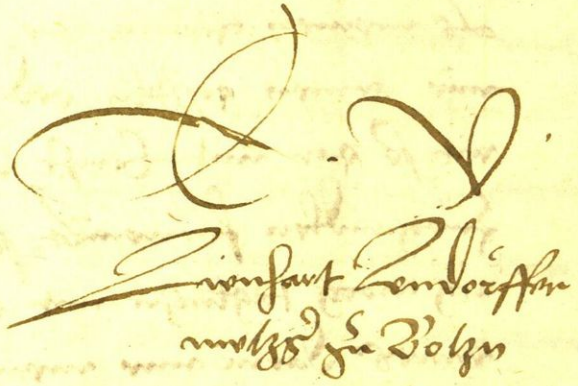 E. V.
Lienhart Lendörffer
metzger zu Botzn